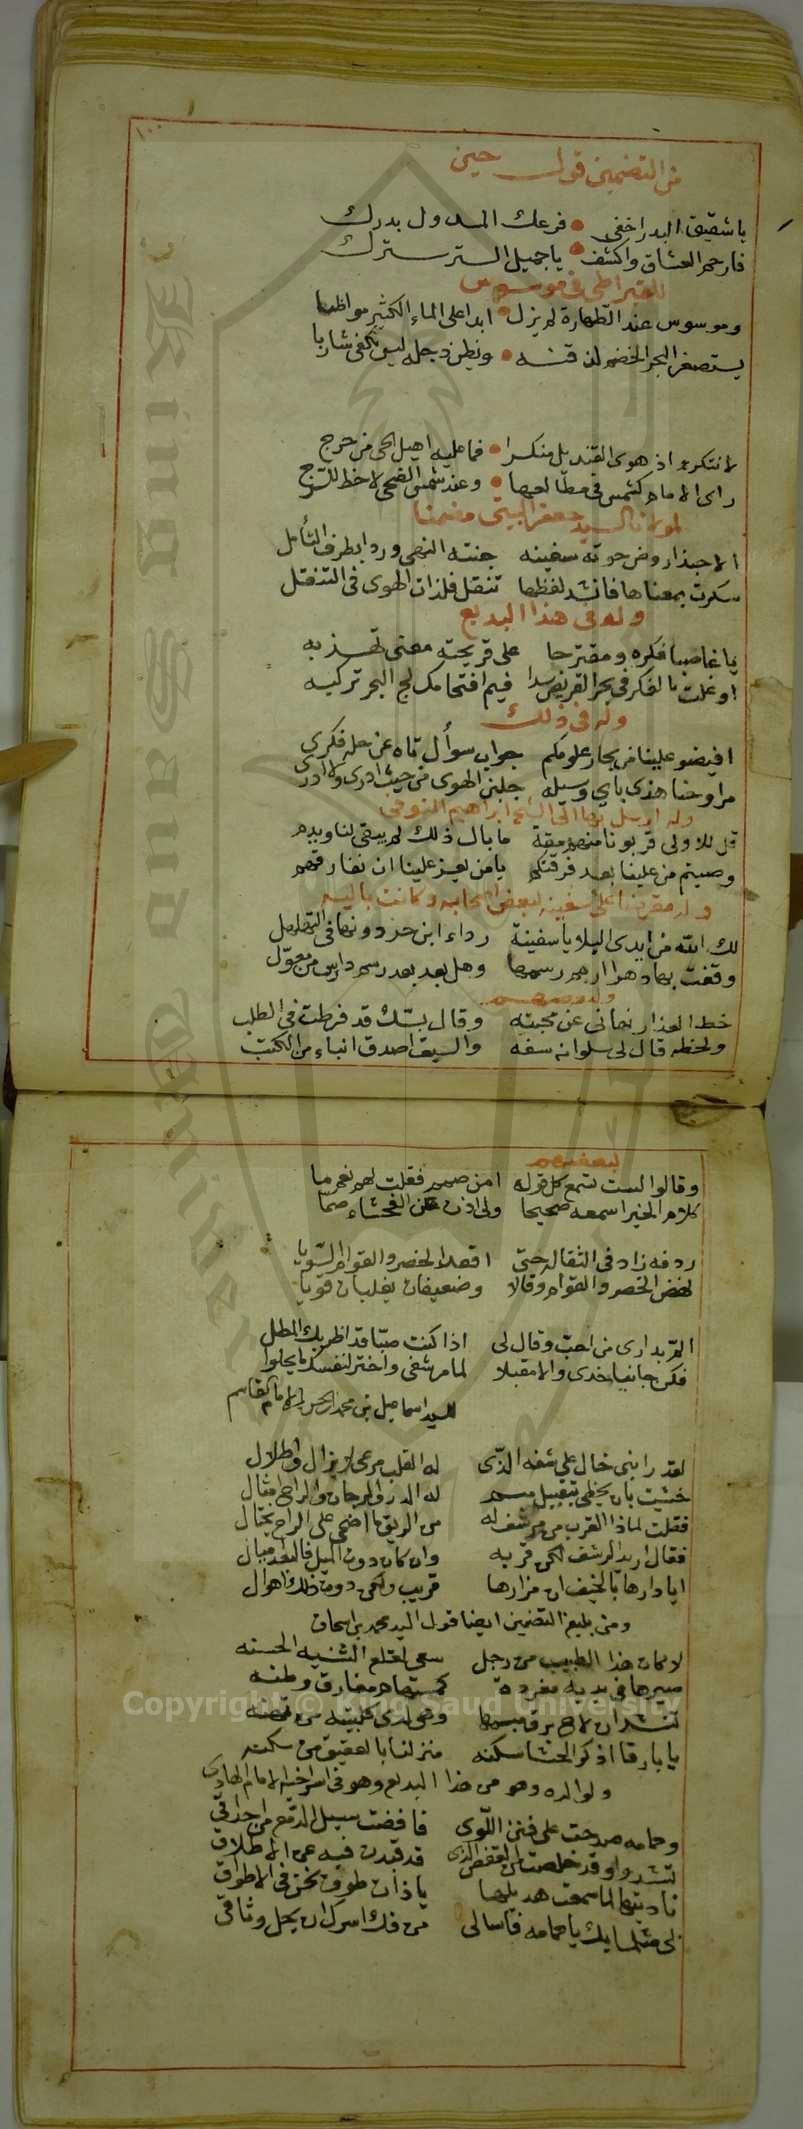 ١٠٠
من التضمين قول حين
يا شقيق البدر اخفى فرعك المسدول بدرك
فارحم العشاق واكشف يا جميل الستر سترك
للقيراطي في موسوس
وموسوس عند الطهارة لم يزل ابدا على الماء الكثير مواظبا
يستصغر البحر الخضم لذقنه ويظن دجلة ليس تكفي شاربا
لا تنكره اذ هوى القنديل منكسرا فما عليه اهيل الحي من حرج
راى الامام كشمس في مطالعها وعند شمس الضحى لا حظ للسرج
لمولانا السيد جعفر البيتي مضمنا
الا حبذا روض حوته سفينه جنته النهى وردا بطرف التأمل
سكرت بمعناها فانشد لفظها تنقل فلذات الهوى في التنقل
وله في هذا البديع
يا غاصبا فكره ومقترحا على قريحته معنى تهذبه
اوغلت بالفكر في بحر القريض سدا فيم اقتحامك لج البحر تركبه
وله في ذلك
افيضو علينا من بحار علومكم جواب سوأل تاه عن حله فكري
مراوحنا هذى باي وسيله جلبن الهوى من حيث ادرى ولا ادرى
وله ارسل بها الى الشيخ ابراهيم
قل للاولى قربونا منهم مقة ما بال ذلك لم يبقى لنا ويدم
وصيتم من علينا بعد فرقتكم يا من يعز علينا ان نفارقهم
وله مقرضا على سفينه لبعض اصحابه وكانت باليه
لك الله من ايدى البلا يا سفينة رداء ابن حزد ونها في التهلهل
وقفت بها دهرا ارجم رسمها وهل بعد بعد رسم دارس من معول
خط العذار نهاني عن محبته وقال بتك قد فرطت في الطلب
ولحظه قال لي سلوانه سفه والسيف اصدق انباء من الكتب
لبعضهم
وقالوا لست تسمع كل قوله امن صمم فقلت لهم نعم ما
كلام الخير اسمعه صحيحا ولي اذن عن الفحشاء صما
ردفه زاد في الثقاله حتى اقعد الخصر والقوام السويا
نهض الخصر والقوام وقالا وضعيفان يغلبان قويا
اذا كنت صبا قد اظر بك المطل
فكن جانيا خدى والا مقبلا لمامرشفي واختر لنفسك ما يحلوا
للسيد اسماعيل بن محمد بن الحسن بن الامام القاسم
لقد رابني خال على شفه الذي له القلب مرعى لا يزال واطلال
خشيت بان يحظى بتقبيل مبسم له الدر والمرجان والراح مثال
فقلت لماذا القرب من مرشف له من الريق ما اضحى على الراح يختال
فقال اريد الرشف لكن قربه وان كان دون الميل فالبعد اميال
ايا دارها بالخيف ان مزارها قريب ولكن دون ذلك اهوال
ومن بليغ التضمين ايضا قول السيد محمد بن اسحاق
لا كان هذا الطبيب من رجل سعى لقلع الثنيه الحسنه
صيرها في يديه مفردة كمستهام مفارق وطنه
تنشد ان لاح برق مبسمها
يا بارقا اذكر الحشا سكنه منزلنا بالعقيق من سكنه
ولوالده وهو من هذا البديع وهو في اسر اخيه الامام الهادي
وحمامه صدحت على فنن اللوى فافضت سيل الدمع من احداقي
تشدو وقد خلصت من القفص الذي قد قيدت فيه عن الاطلاق
ناديتها لما سمعت هديلها يا ذات طوق نحن في الاطواق
لي مثلما بك يا حمامه فاسالي من فك اسرك ان يحل وثاقي